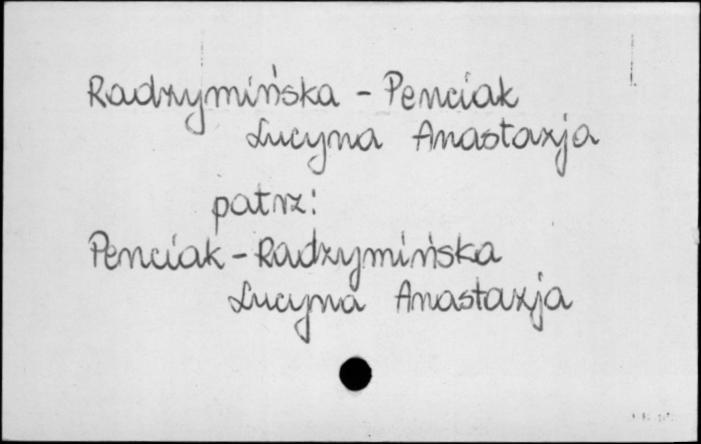 Radzymińska - Penciak
Lucyna Anastazja
patrz:
Penciak - Radzymińska
Lucyna Anastazja